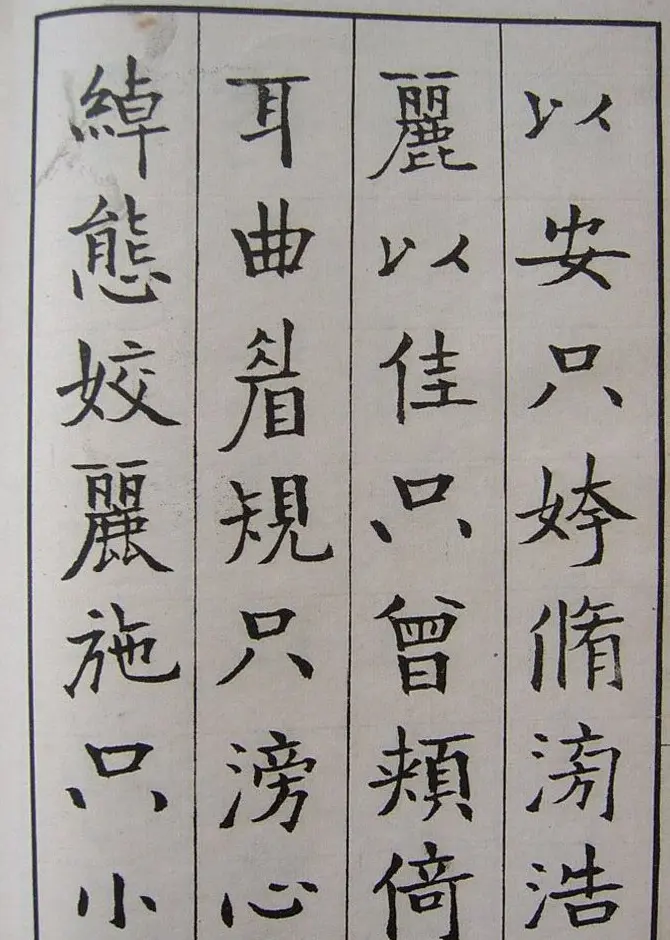 以安只姱脩滂浩
麗以佳只曾頰倚
耳曲眉䂓只滂心
綽態姣麗施只小